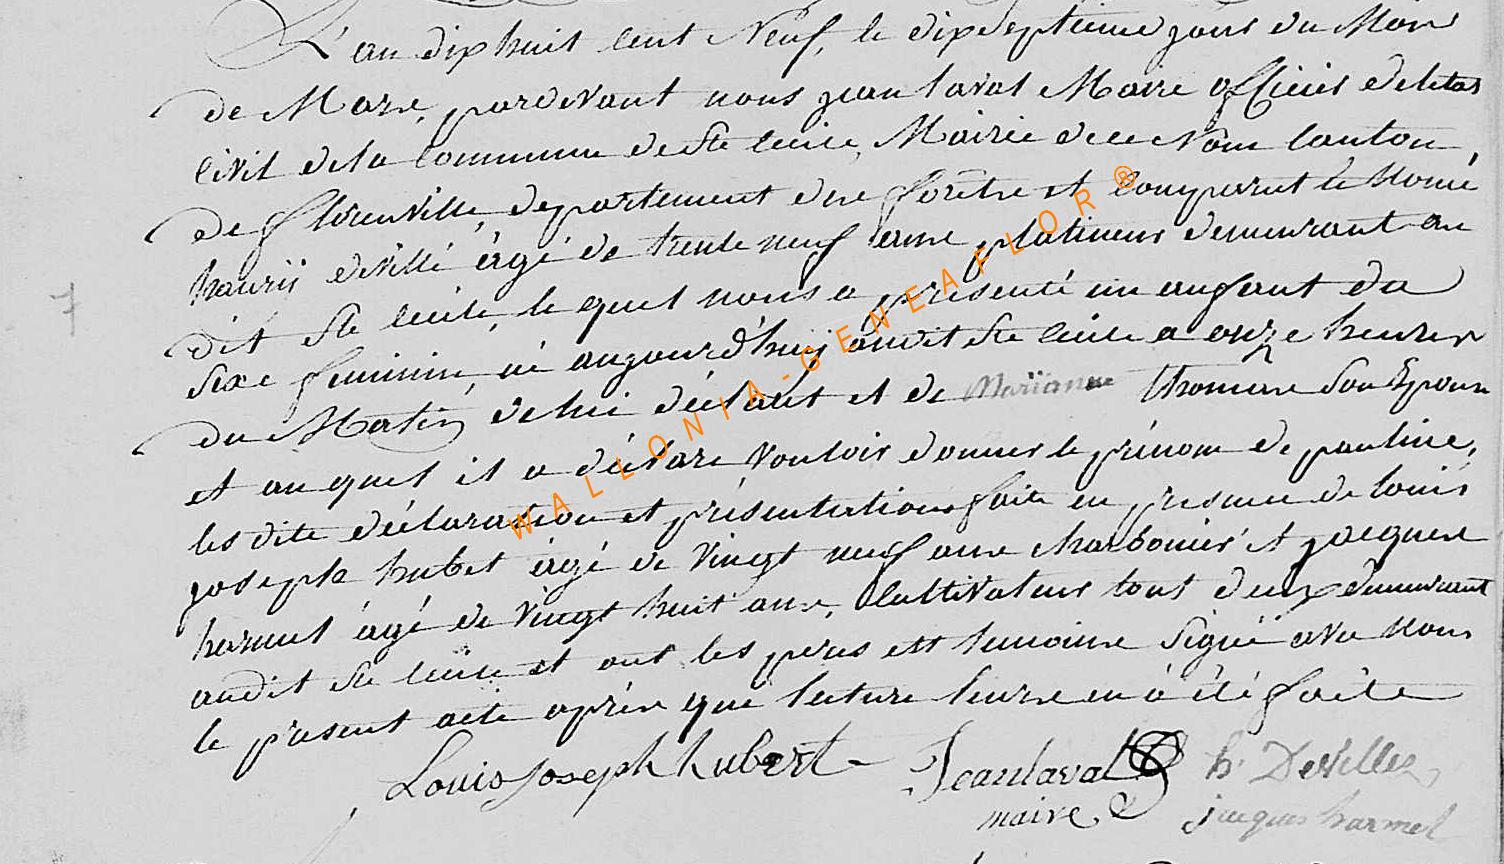 L'an dix huit cent Neuf, le dix septieme jour du Mois
de Mars, pardevant nous jean laval Maire officier de letat
Civil de la Commune de Ste Cécile, Mairie de ce Nom Canton,
de florenville, departement des forêts est Comparut le Nomé
hanrÿ devillé âgé de trente neuf ans platineur demeurant au
dit Ste Cécile, le quel nous a présenté un anfant du
sexe feminin, né aujourd'huÿ audit Ste Cécile a onze heures
du Matin, de lui déclant et de Marïanne thomas son Epouse
et au quel il a déclaré vouloir donner le prénom de pauline,
les dite déclaration et présentation faite en presence de louis
joseph hubet âgé de vingt neuf ans charbonier et jacques
harmel âgé de vingt huit ans, Cultivateur tout deux demeurant
audit Ste Cécile et ont les peres ett temoins signé avec nous
le present acte après que lecture leurs en à été faite
Louis joseph hubert
Jean laval
h. Devillez
maire
jacques harmel
7
WALLONIA-GENEAFLOR®